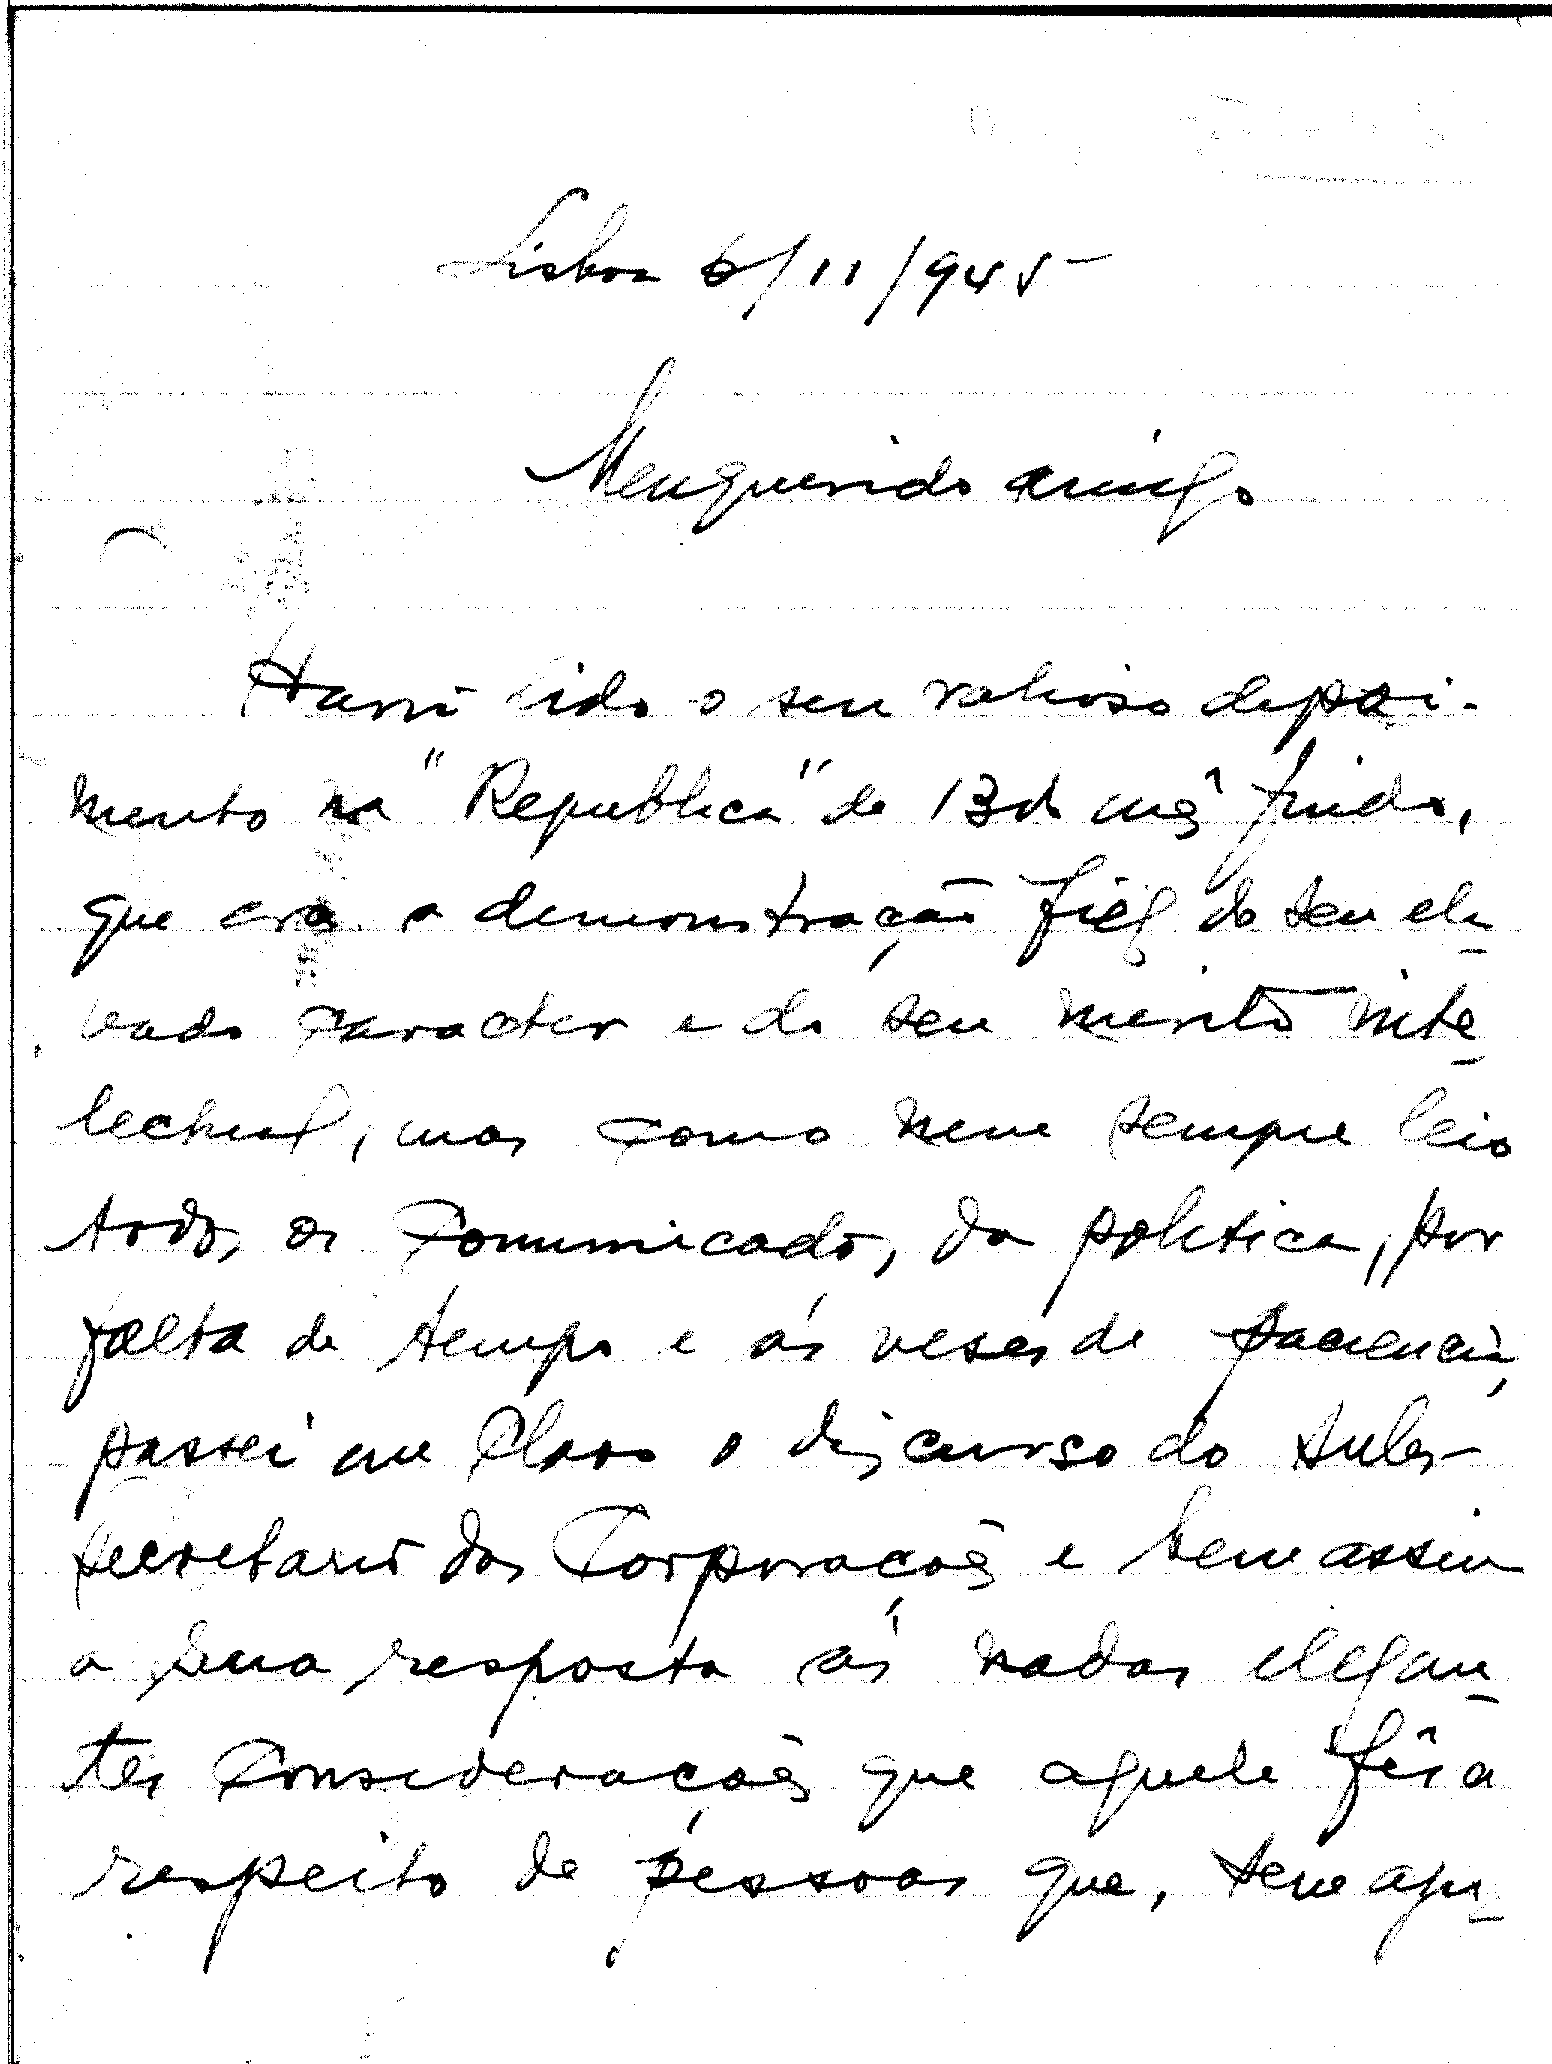 Lisboa 6/11/945
Meu querido amigo
Havia lido o seu valioso depoi-
mento na "Republica" de 13 do mês findo,
que era a demonstração fiel do seu ele-
vado caracter e do seu merito inte-
lectual, mas como nem sempre leio
todos os comunicados da politica, por
falta de tempo e ás veses de paciencia,
passei em claro o discurso do sub-
secretario das Corporações e bem assim
a sua resposta ás nadas elegan-
tes considerações que aquele fês a
respeito de pessoas que, sem apu-